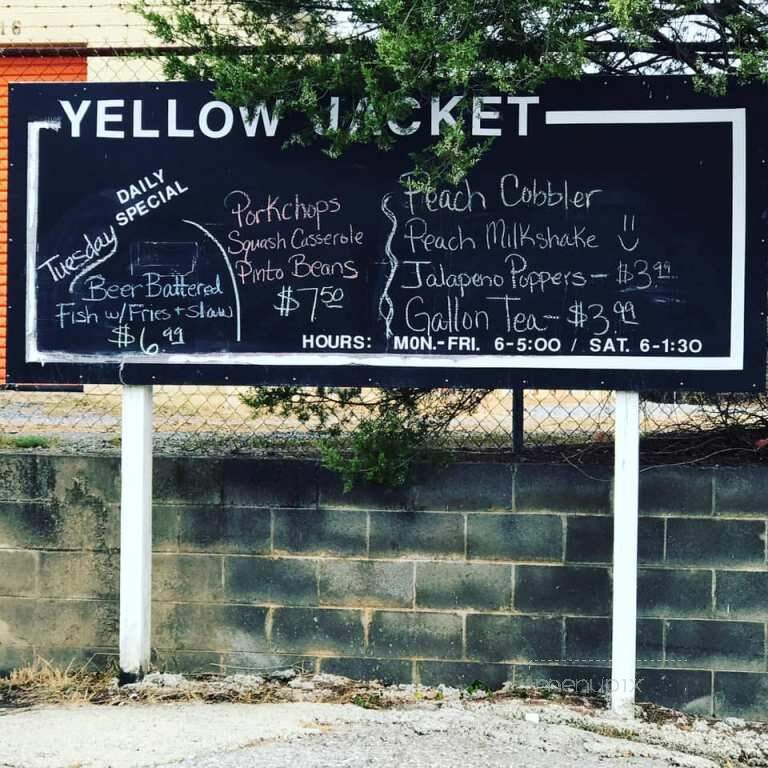 YELLOW JACKET
DAILY
SPECIAL
Tuesday
Beer Battered
Fish w/Fries + Slaw
$6.99
Porkchops
Squash Casserole
Pinto Beans
$7.50
Peach Cobbler
Peach Milkshake :)
Jalapeno Poppers - $3.99
Gallon Tea - $3.99
HOURS: MON.-FRI. 6-5:00 / SAT. 6-1:30
menupix